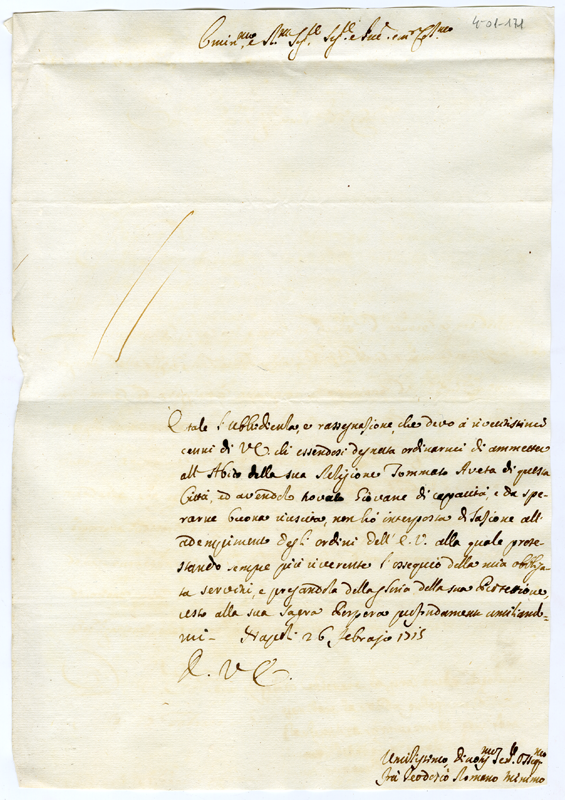 4-01-171
Emin.mo e R.mo Sig.re Sig.re e
È tale l'ubbidienza, e rassegnazione, che devo a i riveritissimi
cenni di V.E. che essendosi degnata ordinarmi di ammettere
all'Abito della sua Religione Tommaso Aveta di questa
Città, ed avendolo trovato Giovane di capacità, e da spe-
rarne buona riuscita, non hò interposta dilazione all'
adempimento degl'ordini dell'E.V. alla quale prote-
stando sempre più riverente l'ossequio della mia obbliga-
ta servitù, e pregandola della gloria della sua Protezione,
resto alla sua Sagra Porpora profondamente umiliando-
mi - Napoli 26 Febrajo 1715
D. V. E.
Umilissimo, divotis.mo Ser.
Frà Teodosio Romano Minimo